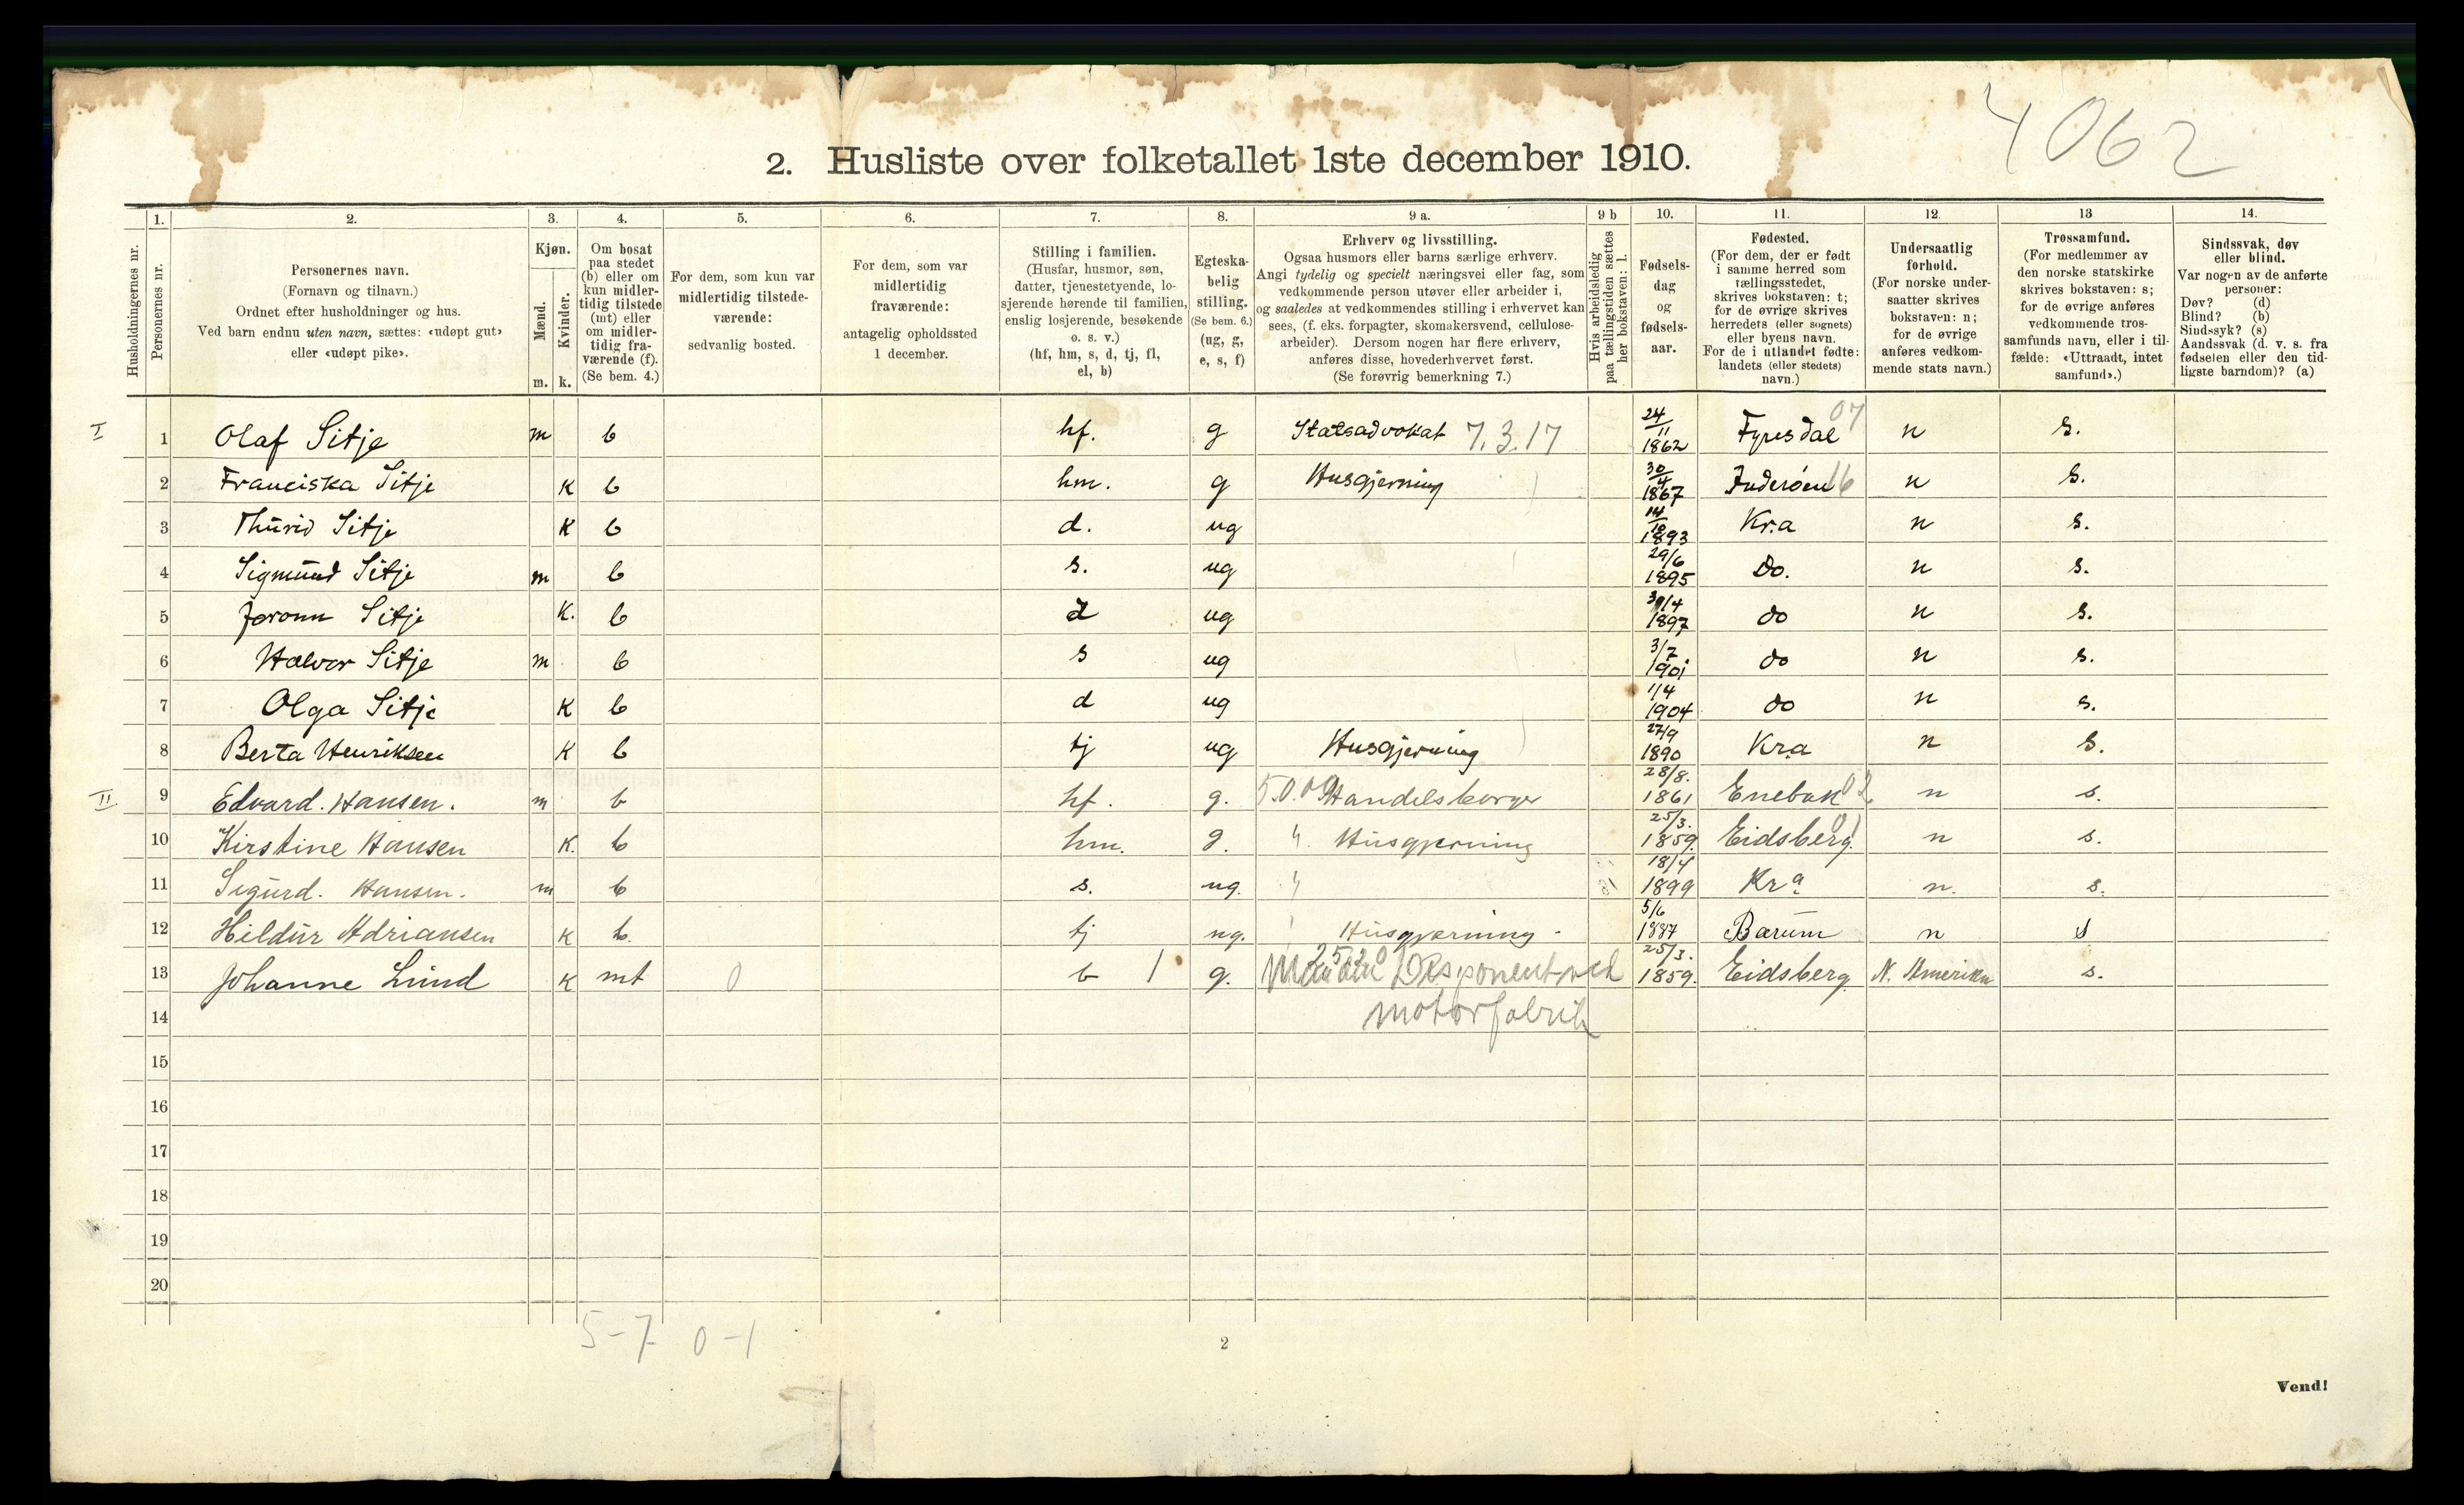 4062
2. Husliste over folketallet 1ste december 1910.
Husholdningernes nr.
1.
Personernes nr.
2.
Personernes navn.
(Fornavn og tilnavn.)
Ordnet efter husholdninger og hus.
Ved barn endnu uten navn, sættes: «udøpt gut»
eller «udøpt pike».
3.
Kjøn.
Mænd.
Kvinder.
m. k.
4.
Om bosat
paa stedet
(b) eller om
kun midler-
tidig tilstede
(mt) eller
om midler-
tidig fra-
værende (f).
(Se bem. 4.)
5.
For dem, som kun var
midlertidig tilstede-
værende:
sedvanlig bosted.
6.
For dem, som var
midlertidig
fraværende:
antagelig opholdssted
1 december.
7.
Stilling i familien.
(Husfar, husmor, søn,
datter, tjenestetyende, lo-
sjerende hørende til familien,
enslig losjerende, besøkende
o. s. v.)
(hf, hm, s, d, tj, fl,
el, b)
8.
Egteska-
belig
stilling.
(Se bem. 6.)
(ug, g,
e, s, f)
9 a.
Erhverv og livsstilling.
Ogsaa husmors eller barns særlige erhverv.
Angi tydelig og specielt næringsvei eller fag, som
vedkommende person utøver eller arbeider i,
og saaledes at vedkommendes stilling i erhvervet kan
sees, (f. eks. forpagter, skomakersvend, cellulose-
arbeider). Dersom nogen har flere erhverv,
anføres disse, hovederhvervet først.
(Se forøvrig bemerkning 7.)
9 b
Hvis arbeidsledig
paa tællingstiden sættes
her bokstaven: l.
10.
Fødsels-
dag
og
fødsels-
aar.
11.
Fødested.
(For dem, der er født
i samme herred som
tællingsstedet,
skrives bokstaven: t;
for de øvrige skrives
herredets (eller sognets)
eller byens navn.
For de i utlandet fødte:
landets (eller stedets)
navn.)
12.
Undersaatlig
forhold.
(For norske under-
saatter skrives
bokstaven: n;
for de øvrige
anføres vedkom-
mende stats navn.)
13
Trossamfund.
(For medlemmer av
den norske statskirke
skrives bokstaven: s;
for de øvrige anføres
vedkommende tros-
samfunds navn, eller i til-
fælde: «Uttraadt, intet
samfund».)
14.
Sindssvak, døv
eller blind.
Var nogen av de anførte
personer:
Døv? (d)
Blind? (b)
Sindssyk? (s)
Aandssvak (d. v. s. fra
fødselen eller den tid-
ligste barndom)? (a)
I 1 Olaf Sitje m b hf. g Statsadvokat 7.3.17 24/11 1862 Fyresdal 07 n s.
2 Franciska Sitje K b hm. g Husgjerning 30/4 1867 Inderøen 16 n s.
3 Thurid Sitje K b d. ug 14/10 1893 Kr.a n s.
4 Sigmund Sitje m b s. ug 29/6 1895 Do. n s.
5 Joronn Sitje K. b d ug 30/4 1897 do n s.
6 Halvor Sitje m b s ug 3/7 1901 do n s.
7 Olga Sitje K b d ug 1/4 1904 do n s.
8 Berta Henriksen K b tj ug Husgjerning 27/9 1890 Kr.a n s.
II 9 Edvard. Hansen. m b hf. g. 5.0.09 Handelsborger 28/8. 1861 Enebak 02 n s.
10 Kirstine Hansen K. b hm. g. " Husgjerning 25/3. 1859. Eidsberg. 01 n s.
11 Sigurd. Hansen. m b s. ug. " 18/4 1899 Kra n. s.
12 Hildur Adriansen K b. tj ug. Husgjerning - 5/6 1887 Bærum n s
13 Johanne Lund K mt 0 b 1 g. Disponent ved 25/3. 1859. Eidsberg. N. Amerika s.
14 motorfabrik
15
16
17
18
19
20
5-7 0-1
2
Vend!